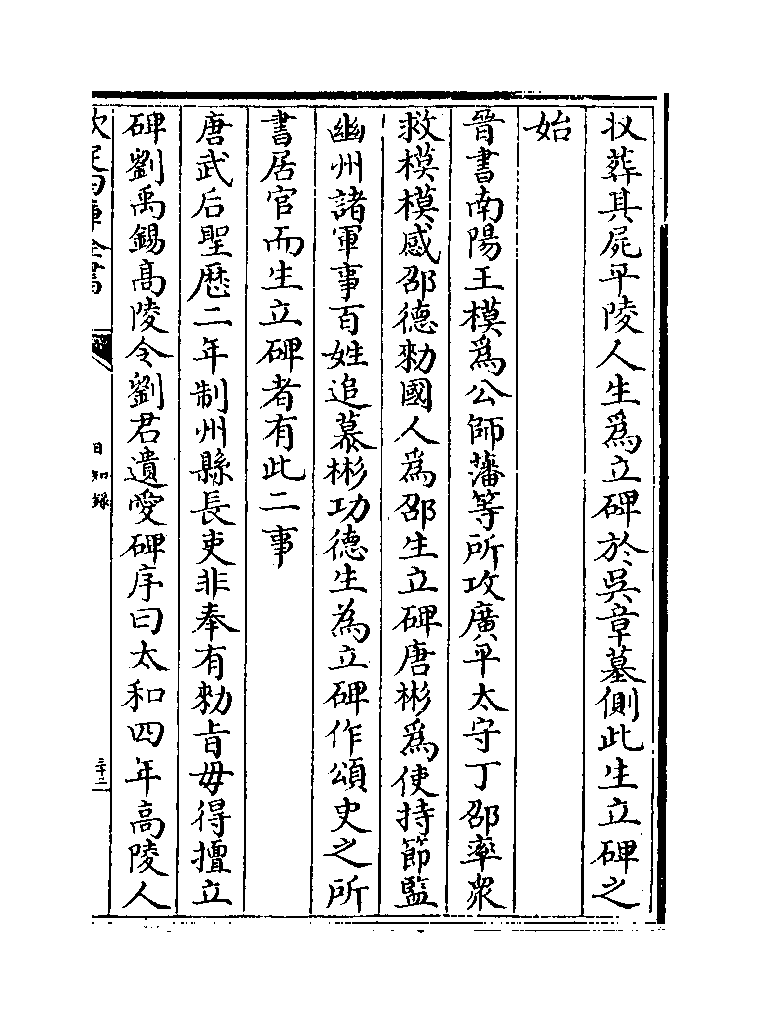 収葬其屍平陵人生為立碑於吳章墓側此生立碑之
始
晉書南陽王模為公師藩等所攻廣平太守丁邵率衆
救模模感邵德勑國人為邵生立碑唐彬為使持節監
幽州諸軍事百姓追慕彬功德生為立碑作頌史之所
書居官而生立碑者有此二事
唐武后聖厯二年制州縣長吏非奉有勑旨毋得擅立
碑劉禹錫高陵令劉君遺愛碑序曰太和四年高陵人
日知錄
三十二